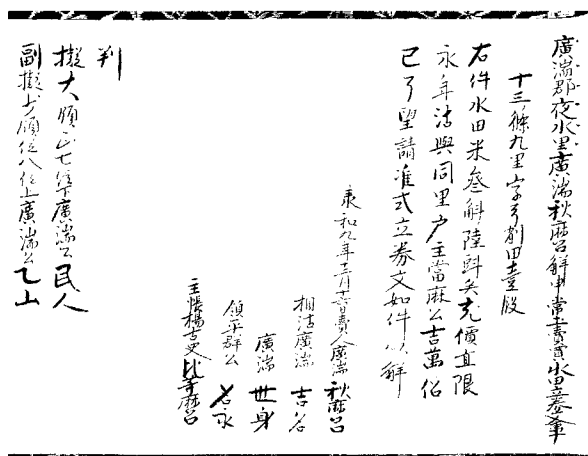 廣湍郡夜水里廣湍秋麻呂解申常土賣買水田券
十三條九里字弓削田壹段
右件水田米叄斛陸斗矣充價直限
永年沽與同里戶主當麻公吉萬侶
已了望請准式立券文如件以解
承和九年三月十六日賣人廣湍 秋麻呂
相沽廣湍 吉名
廣湍 世身
領平群公 名永
主帳楊古史比等麻呂
判
擬大領正七位下廣湍公民人
副擬少領從八位上廣湍公乙山